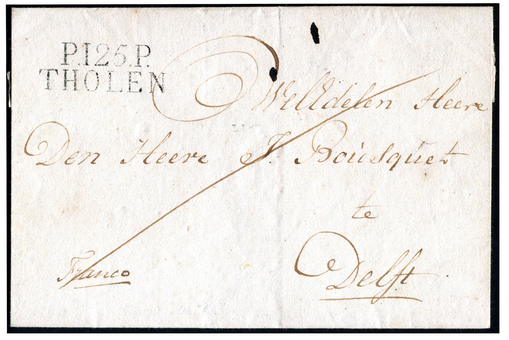 P.125.P.
THOLEN
WelEdelen Heere
Den Heere J. Bousquet
te
Delft
Franco